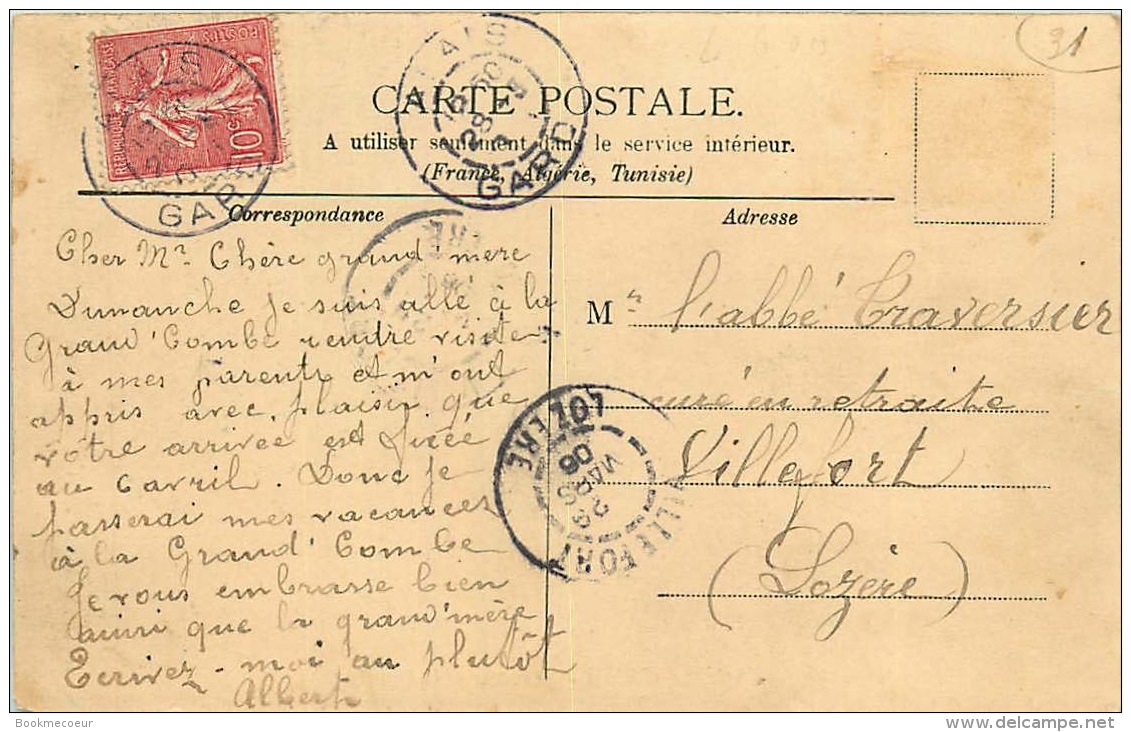 31
POSTES
REPUBLIQUE FRANÇAISE
10c
GARD
ALAIS
28 -3
GARD
CARTE POSTALE.
A utiliser seulement dans le service intérieur.
(France, Algérie, Tunisie)
Correspondance
Adresse
Cher Mr. Chère grand'mère
Dimanche je suis allé à la
Grand'Combe rendre visite
à mes parents et m'ont
appris avec plaisir que
votre arrivée est fixée
au 6 avril. Donc je
passerai mes vacances
à la Grand'Combe
Je vous embrasse bien
ainsi que la grand'mère
Ecrivez-moi au plutôt
Albert
Mr l'abbé Traversier
curé en retraite
Villefort
(Lozère)
VILLEFORT
29
MARS
06
LOZERE
Bookmecoeur
www.delcampe.net